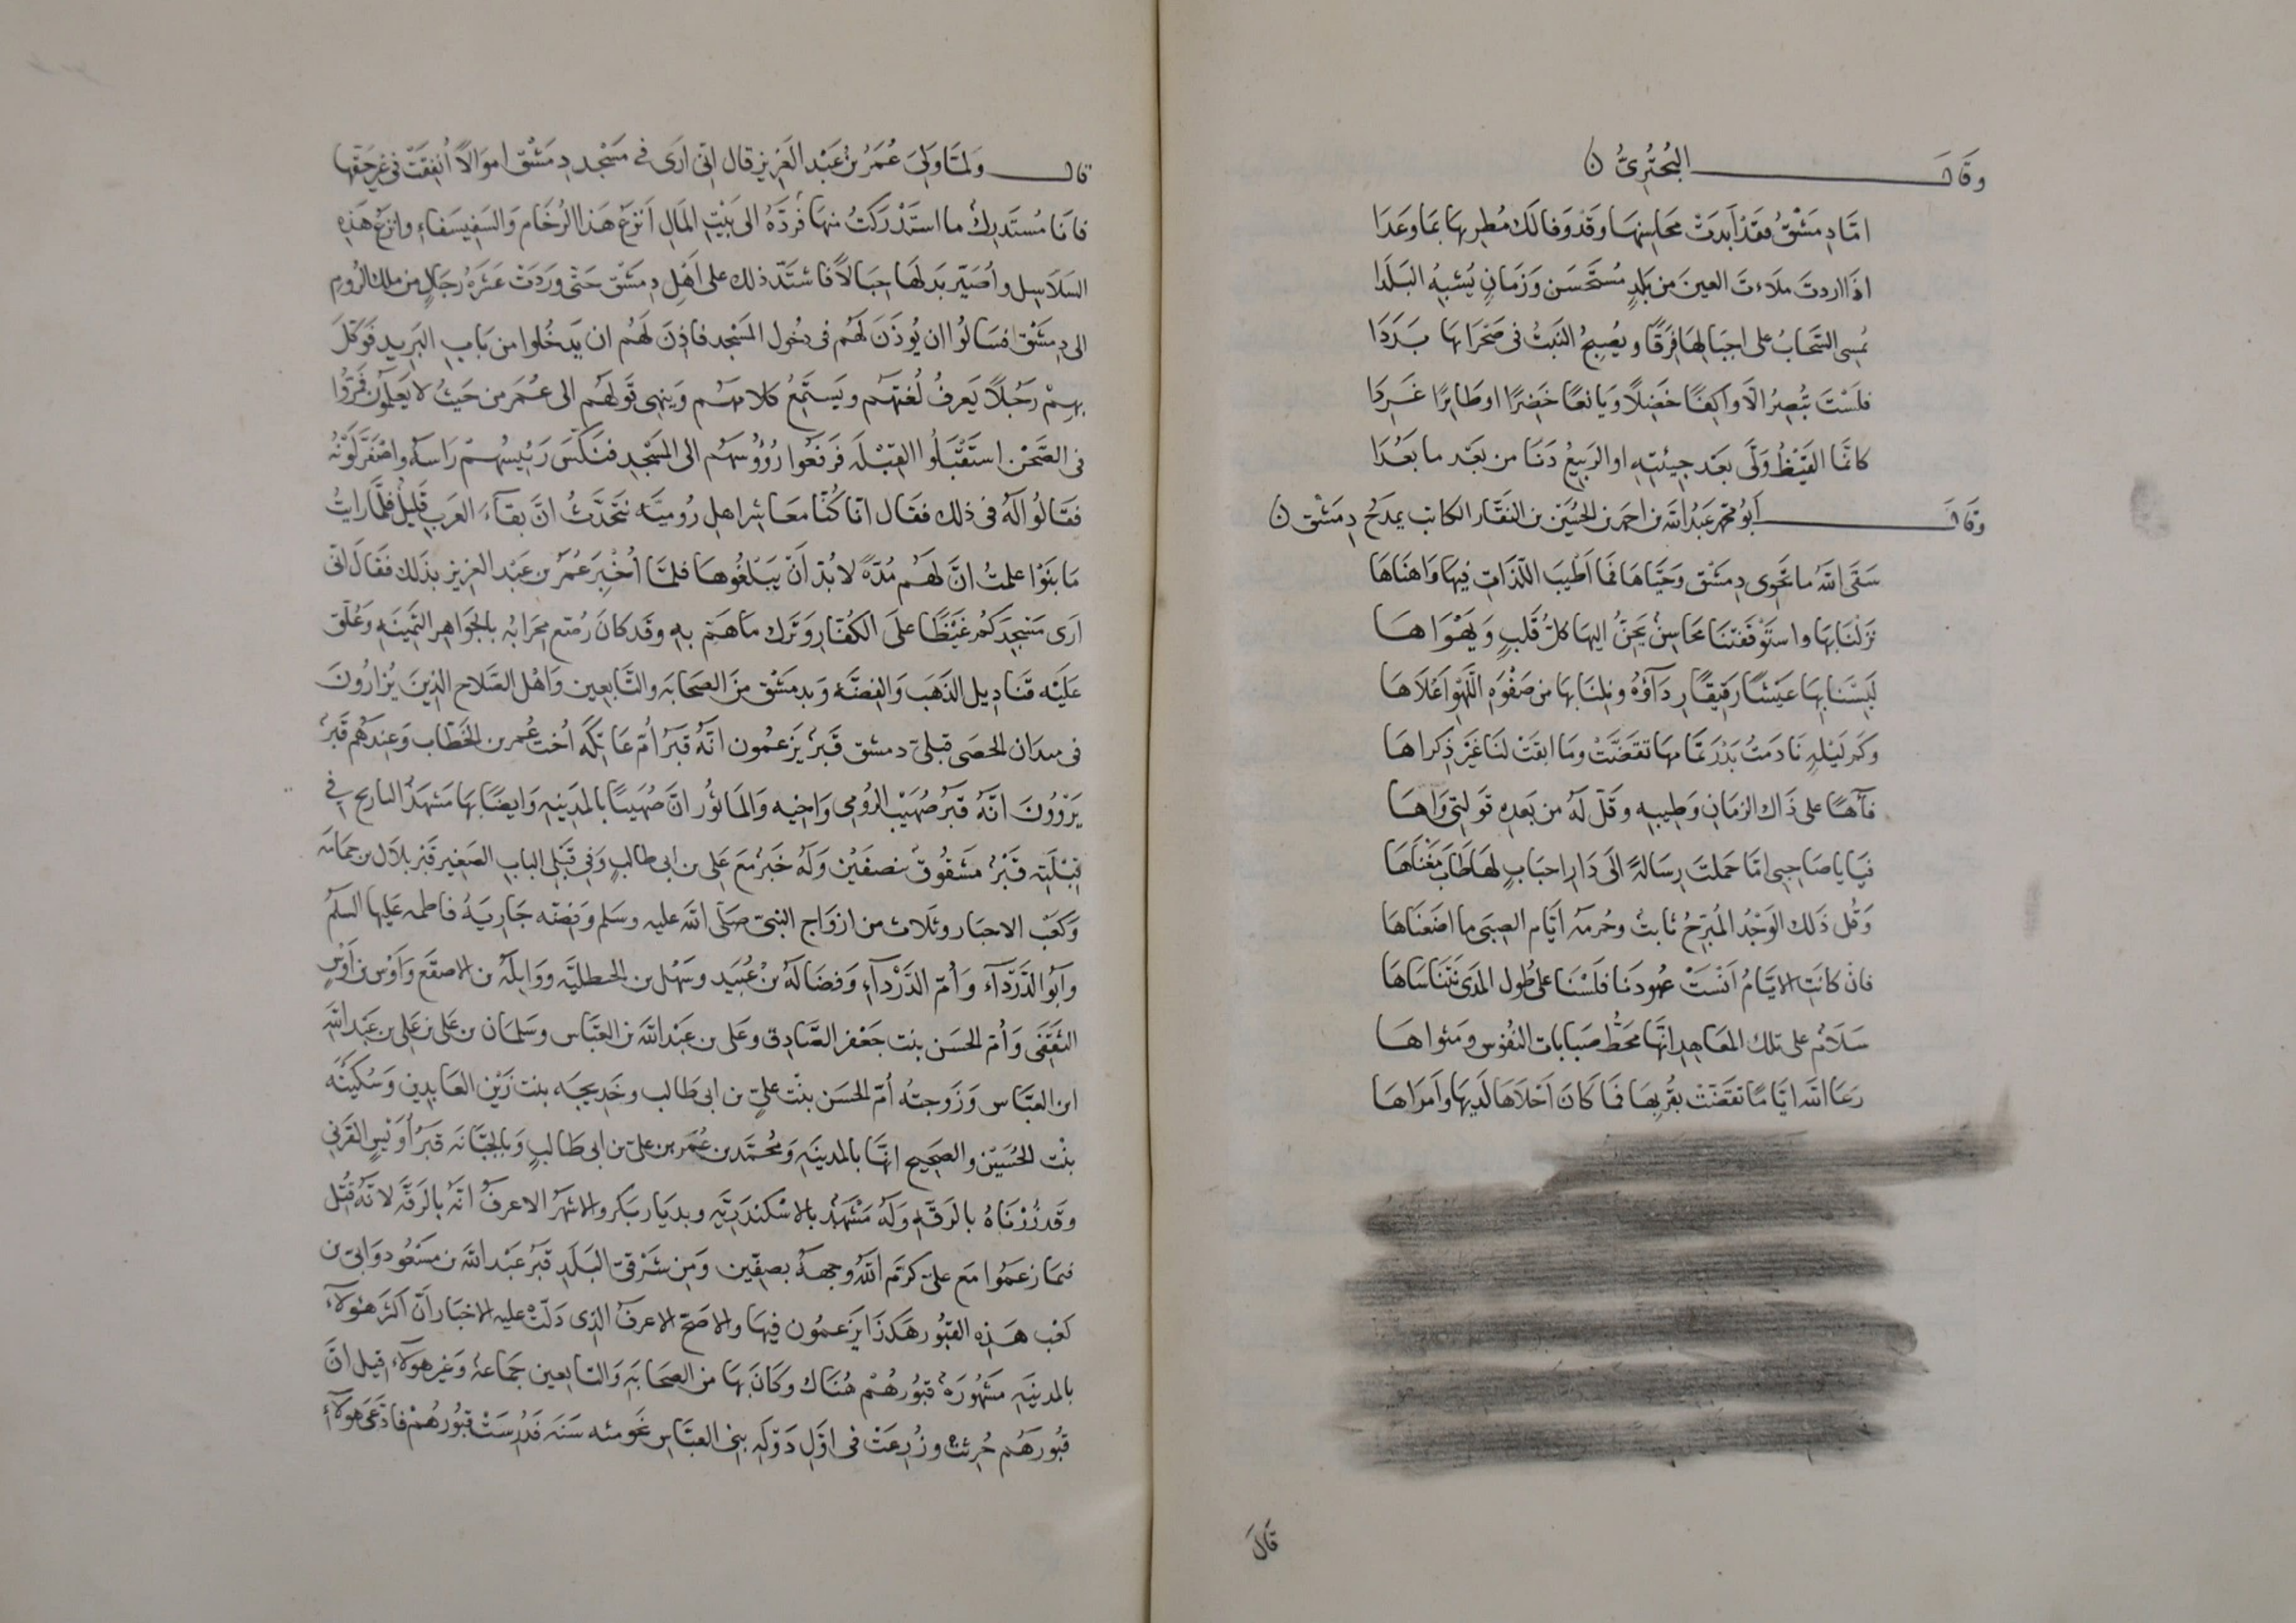 وقال البُحْتُرِيُّ ن
امّا دِمَشْقُ فقَدْ اَبدَتْ مَحاسِنهَا وَقَدْ وَفا لَكَ مُطرِيهَا بمَا وَعَدَا
اذَا اردتَ ملاءتَ العينَ مِن بَلدٍ مُستَحسَن وَزَمَانٍ يُشبِهُ البَلَدا
يُمسِى السَّحابُ على اجبَالِهَا فِرَقًا ويُصبِحُ النَبتُ فى صَحْرَاىهَا بَدَدَا
فلَسْتَ تُبْصِرُ الاّ وَاكِفًا خَضِلاً وَيَانعًا خَضِرًا اوطَايرًا غَرِدَا
كانّمَا القَيْظُ وَلّى بَعَد جِيئتِهِ اوالرَبِيعُ دَنَا مِن بَعَد ما بَعُدَا
وقال اَبُو محمّد عَبْدُ اللّه بن احمَد بن الحُسَيْن بن النَقّار الكاتب يمدَحُ دِمَشْق ن
سَقَى اللّهُ ما تَحْوِى دِمَشْق وَحَيَّاهَا فَمَا اَطْيبَ اللّذَاتِ فِيهَا وَاهنَاهَا
نزَلْنَا بهَا واستَوْقَفَتنَا مَحَاسِنٌ يَحِنُّ اليهَا كلُّ قَلبٍ وَيَهْوَاهَا
لَبِسْنا بِهَا عَيْشًا رَقيقًا رِدَآؤُهُ ونِلنَا بهَا مِن صَفْوَةِ اللَهْوِ اَعْلاَهَا
وكَم لَيْلةٍ نَادَمتُ بَدْرَ تَمَامِهَا تقَضَّتْ وَمَا ابقَتْ لنَا غَيَر ذِكراهَا
فآهًا على ذَاك الزمَانِ وَطِيبِهِ وقَلّ لَهُ من بَعدِهِ قَولتِى وَاهَا
فيَا يا صَاحِبِى امّا حَملتَ رِسَالةً الَى دَارِ احبَابٍ لهَا طَابَ مَغْنَاهَا
وَقُل ذَلك الوَجْدُ المُبَرِّحُ ثابتٌ وحُرمَةُ اَيّامِ الصِبَى ما اضَعنَاهَا
فانْ كانَتِ الايّامُ اَنْسَتْ عهُودَنا فلَسْنَا على طُول المَدَى نَتَنَاسَاهَا
سَلاَم على تلك المعَاهِدِ انّهَا مَحَطُّ صَبَابات النُفُوس ومَثوَاهَا
رعَا اللّه ايّامًا تقَضّتْ بقُربِهَا فمَا كَانَ اَحْلاَهَا لَدَيهَا وَاَمرَاهَا
قَالَ
قال ولمّا وَلِىَ عُمَرُ بنُ عَبْد العَزيزِ قال انّى ارَى فى مَسْجد دِمَشْق اموَالاً اُنفِقَتْ فى غيرِ حَقّهَا
فانَا مُستَدرِكٌ ما استَدْرَكتُ مِنهَا فَرَدّهُ الى بَيْتِ المَالِ اَنزعُ هَذا الرُخَام وَالسَفَيسَفاءِ وانزعُ هَذِهِ
السَلاَسِل واُصَيّر بَدلهَا حِبَالاً فاشتَدّ ذلك على اَهْلِ دِمَشْق حَتّى وَرَدَتْ عَشَرَةُ رجَالٍ مِن ملك الرُومِ
الى دِمَشْق فسَالُوا ان يُوذَنَ لَهُم فى دخُول المَسْجد فاذِنَ لَهُم ان يَدخُلوا من بَابِ البَرِيد فَوَكّلَ
بِهِمْ رَجُلاً يَعرِفُ لُغَتَهُم ويَستَمِعُ كلامَهُم وَيُنهِى قَولَهُم الى عُمَر مِن حَيثُ لا يَعلمُونَ فمَرّوُا
فى الصَّحْن استَقْبَلُوا القِبْلة فَرَفَعُوا رُؤُوسَهُم الى المَسْجدِ فنَكّسَ رَئيسُهُمْ رَاسَهُ واصْفَرّ لَوْنُهُ
فقَالُوا لَهُ فى ذلك فقَال انّا كُنّا معَاشِر اهل رُوميّة نتَحَدّثُ انَّ بقَآءَ العَرَبِ قَليلٌ فلمّا رايتُ
مَا بنَوْا علمتُ انَّ لَهُم مُدّةً لا بُدّ اَنْ يَبلُغُوهَا فلمّا اُخْبِرَ عُمَرُ بن عَبْد العزيز بذَلك فقَال انّى
ارَى مَسْجِدَكُم غَيْظًا عَلَى الكُفّارِ وَتَرك مَا هَمّ بِهِ وقد كانَ رُصّع مِحرَابُه بالجَوَاهِر الثَمِينَةِ وَعُلّق
عَلَيْه قنَادِيل الذَهَب وَالفِضّة وَبدمَشْق مِنَ الصحَابَة والتَّابعِين وَاهْل الصَّلاح الذِينَ يُزارُونَ
فى مىدان الحصَى قبلىّ دمشق قَبرٌ يَزعُمُون انّهُ قَبْرُ اُمّ عَاتِكَة اُخت عُمر بن الخَطّاب وَعِندَهُم قَبرٌ
يَرْوُونَ انّهُ قَبْرُ صُهَيْب الرُومِى وَاخِيه وَالمَاثُور انّ صُهَيبًا بالمَدينَةِ وَايضًا بهَا مَشهَدُ التاريح فى
قِبْلَتِه قَبْرٌ مَشقُوقٌ بنصفَيْن وَلَهُ خَبَرٌ مَعَ عَلى بن ابى طالبٍ وَفِى قَبْلى البابِ الصغِير قَبْر بلاَل بن حمَامَة
وَكَعْب الاحبَار وثَلاث من ازوَاج النبىّ صَلّى اللّه عليه وسَلم وَفِضّه جَاريَةُ فاطمه عَليهَا السلمُ
وَاَبُو الدَّرْدَآءِ وَاُمّ الدَّرْدَآءِ وَفضَالَةُ بنُ عُبَيد وسَهْل بن الحنظليَّه ووَاثِلَةُ بن الاسقَع وَاَوْس بن اَوْسٍ
الثَقَفى وَاُمّ الحَسَن بنت جَعْفر الصَّادِق وعَلى بن عَبْد اللّه بن العبّاس وسَلمَان بن عَلى بن عَلى بن عَبْد اللّهِ
ابن العبّاس وَزَوجتُه اُمّ الحَسَن بنْت علىّ بن ابى طَالب وخَدِيجَه بنت زَيْن العَابدِين وَسُكَينَه
بنْت الحُسَيْن والصَحِيح انّهَا بالمدينَةِ وَمُحمَّد بن عُمَر بن علىّ بن ابى طَالبٍ وَبالجبّانَة قبرُ اُوَيْسٍ القَرَنِى
وقَد زُرْنَاهُ بالرَقّةِ وَلَهُ مَشْهَدٌ بالاسْكندَريّةِ وبدِيَار بَكر والاشهَرُ الاعرفُ انّهُ بالرَقّة لانّهُ قُتِل
فيمَا زَعَمُوا مَع علىّ كرّمَ اللّهُ وجهَهُ بصِفّين وَمِن شَرْقىّ البَلَدِ قَبرُ عَبْد اللّه بن مسْعُود وَابىّ بن
كعب هَذِه القبُور هَكذَا يَزعمُون فيهَا والاصَحّ الاعرفُ الذِى دَلّتْ عليه الاخبَار اَنّ اكثَر هَؤلاءِ
بالمدينَةِ مَشْهُورَةٌ قبُورهُمْ هُنَاك وكَانَ بهَا مِن الصحَابَةِ وَالتابعين جمَاعةٌ وَغير هَولاء قيل انّ
قبُورَهُم حُرثتْ وزُرِعَتْ فى اوّلِ دَوْلَةِ بنى العبَّاس نحو مئه سَنَة فدُرسَتْ قبُورُهُمْ فادّعىَ هَولاءِ